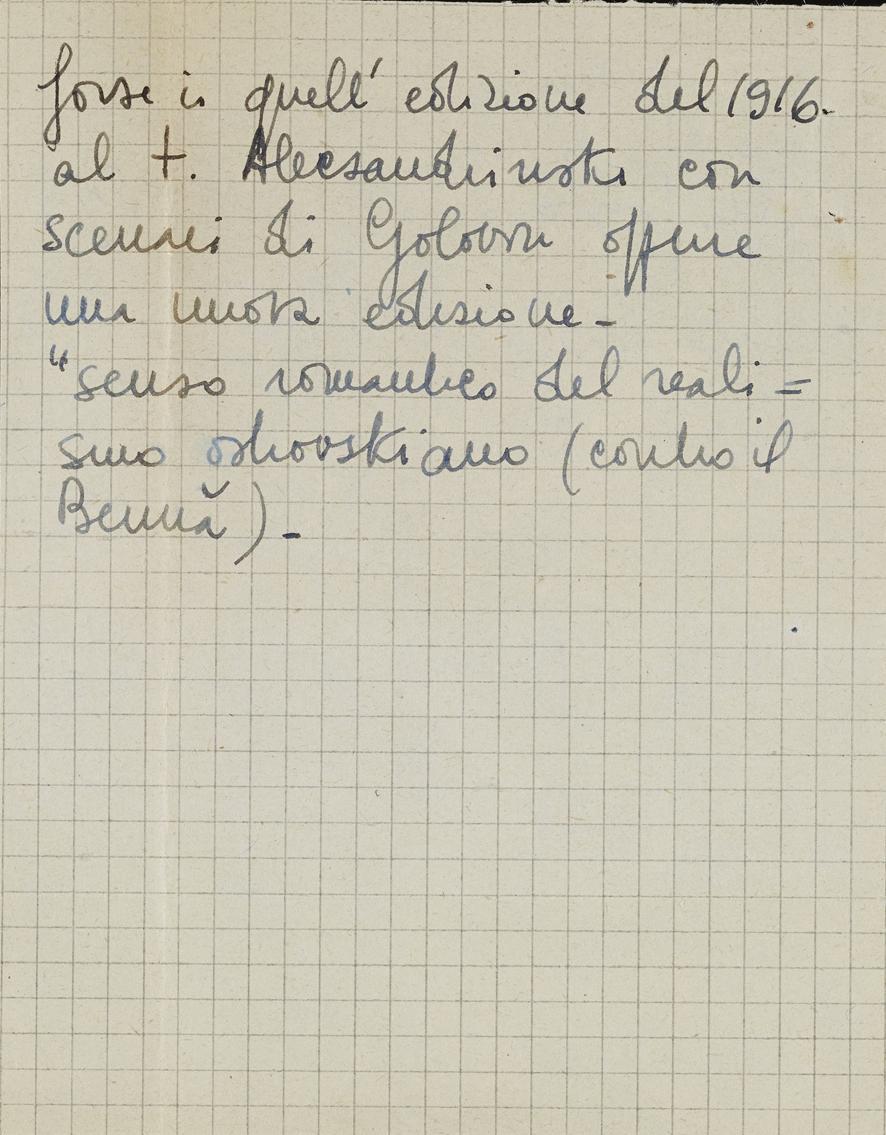 forse in quell' edizione del 1916.
al t. Alecsandrinski con
scenari di Golovin oppure
una nuova edizione -
"senso romantico del reali =
smo ostrovskiano (contro il
Bennă). -